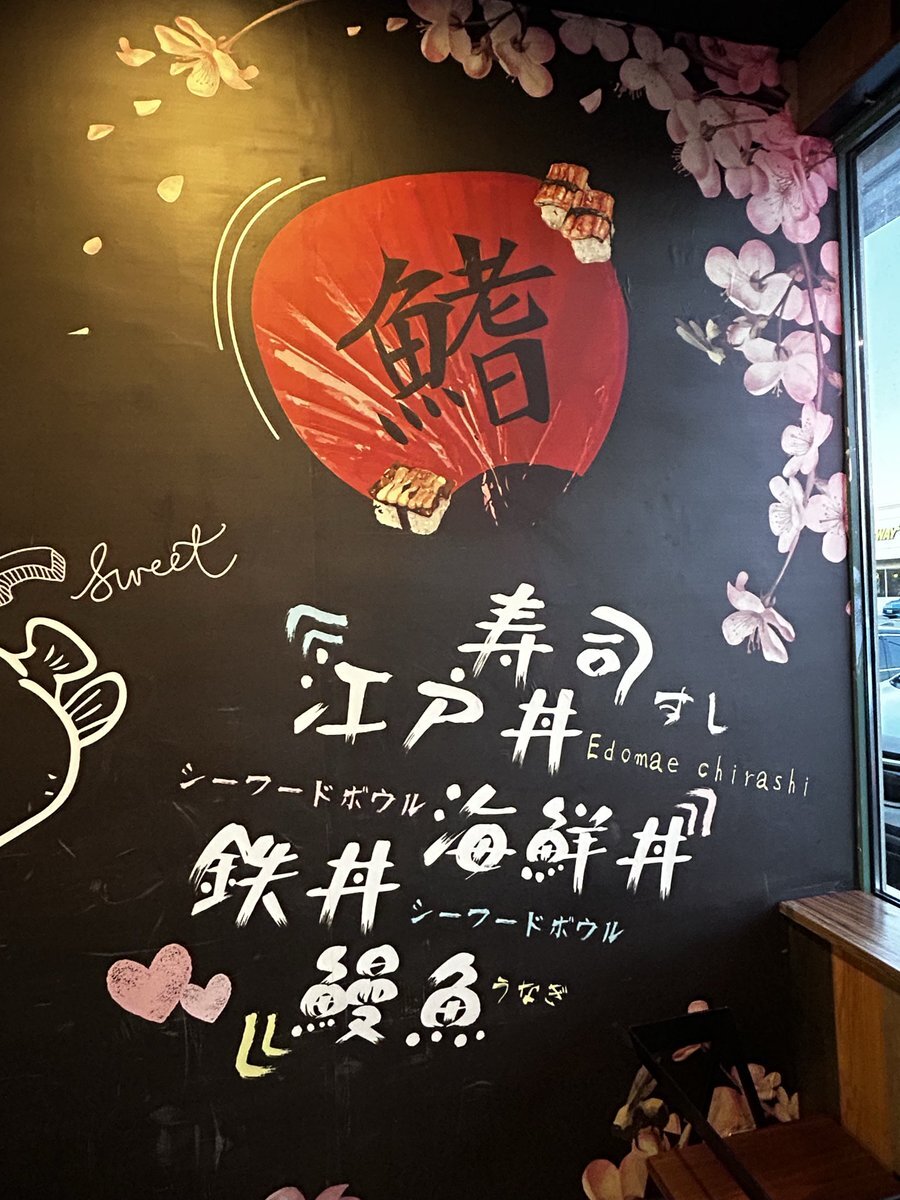 鰭
Sweet
寿司
すし
江戸丼
Edomae chirashi
シーワードボウル
海鮮丼
鉄丼
シーワードボウル
鰻魚
うなぎ
WAY